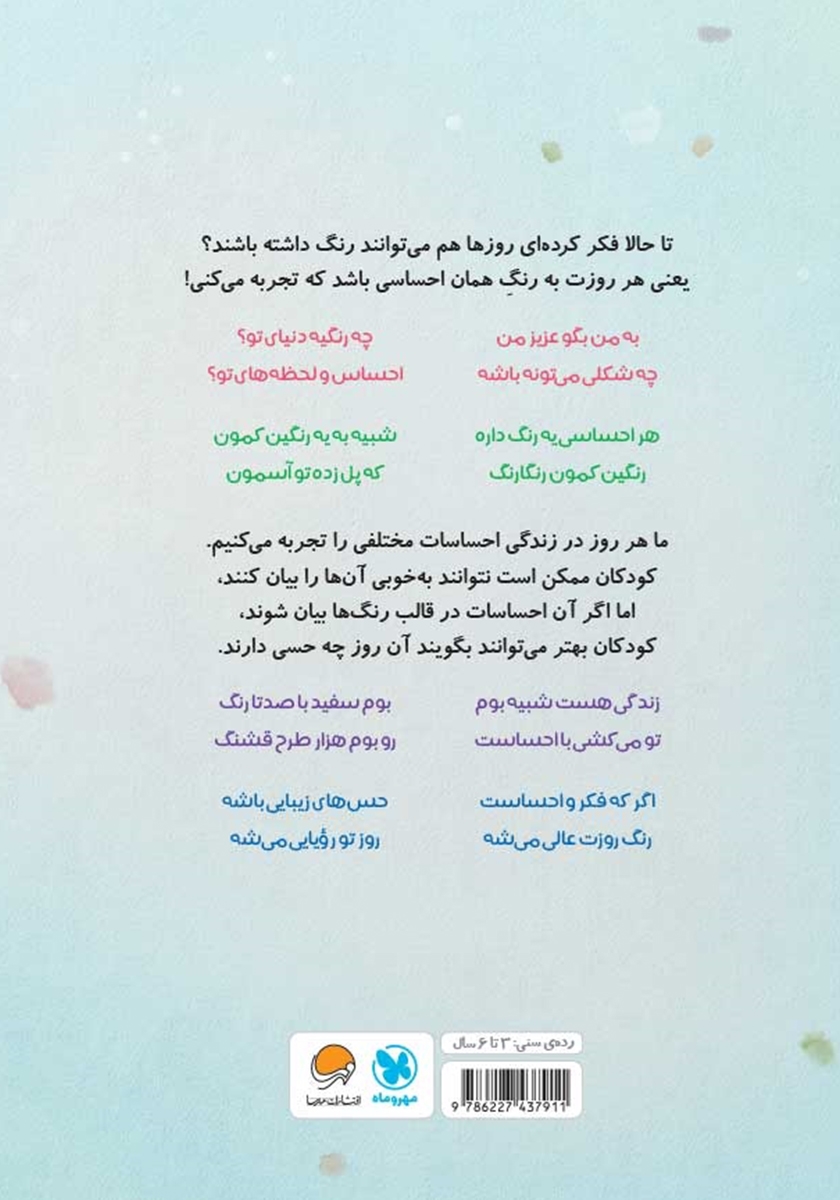 تا حالا فکر کرده‌ای روزها هم می‌توانند رنگ داشته باشند؟
یعنی هر روزت به رنگِ همان احساسی باشد که تجربه می‌کنی!
به من بگو عزیز من چه رنگیه دنیای تو؟
چه شکلی می‌تونه باشه احساس و لحظه‌های تو؟
هر احساسی یه رنگ داره شبیه به یه رنگین کمون
رنگین کمون رنگارنگ که پل زده تو آسمون
ما هر روز در زندگی احساسات مختلفی را تجربه می‌کنیم.
کودکان ممکن است نتوانند به‌خوبی آن‌ها را بیان کنند،
اما اگر آن احساسات در قالب رنگ‌ها بیان شوند،
کودکان بهتر می‌توانند بگویند آن روز چه حسی دارند.
زندگی هست شبیه بوم بوم سفید با صدتا رنگ
تو می‌کشی با احساست رو بوم هزار طرح قشنگ
اگر که فکر و احساست حس‌های زیبایی باشه
رنگ روزت عالی می‌شه روز تو رؤیایی می‌شه
رده‌ی سنی: ۳ تا ۶ سال
مهروماه
انتشارات
9 786227 437911